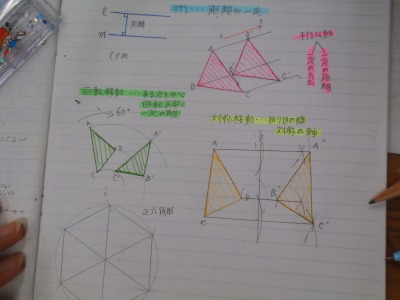 平行・・・距離が一定
ℓ
距離
m
ℓ // m
平行移動
一定の方向
一定の距離
A
A'
B
B'
C
C'
回転移動・・・ある点を中心
回転の
一定の角度
60°
A
A'
B
C
C'
B'
対称移動・・・折り目の線
対称の軸
A
A'
B
B'
C
C'
正六角形